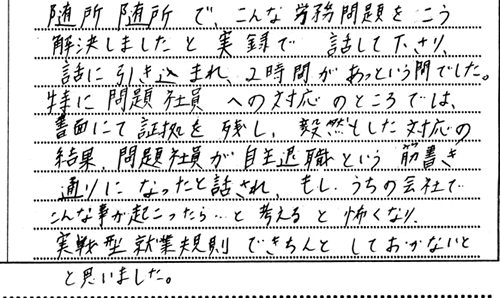 随所随所で、こんな労務問題をこう
解決しましたと実録で話して下さり、
話に引き込まれ、2時間があっという間でした。
特に問題社員への対応のところでは、
書面にて証拠を残し、毅然とした対応の
結果、問題社員が自主退職という筋書き
通りになったと話され、もし、うちの会社で
こんな事が起こったら…と考えると怖くなり、
実戦型就業規則できちんとしておかないと
と思いました。